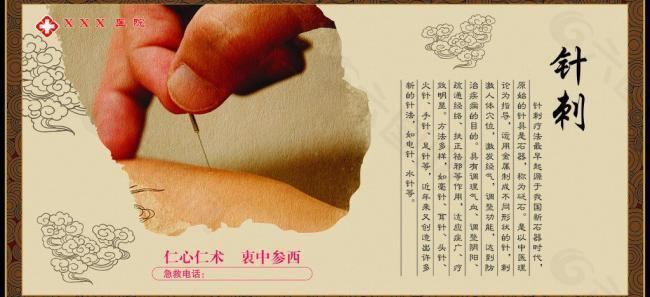 XXX医院
针刺
针刺疗法最早起源于我国新石器时代，
原始的针具是石器，称为砭石。是以中医理
论为指导，运用金属制成不同形状的针，刺
激人体穴位，激发经气，调整功能，达到防
治疾病的目的。具有调理气血、调整阴阳、
疏通经络、扶正祛邪等作用，适应症广、疗
效明显。方法多样，如毫针、耳针、头针、
火针、手针、足针等，近年来又创造出许多
新的针法，如电针、水针等。
仁心仁术 衷中参西
急救电话：